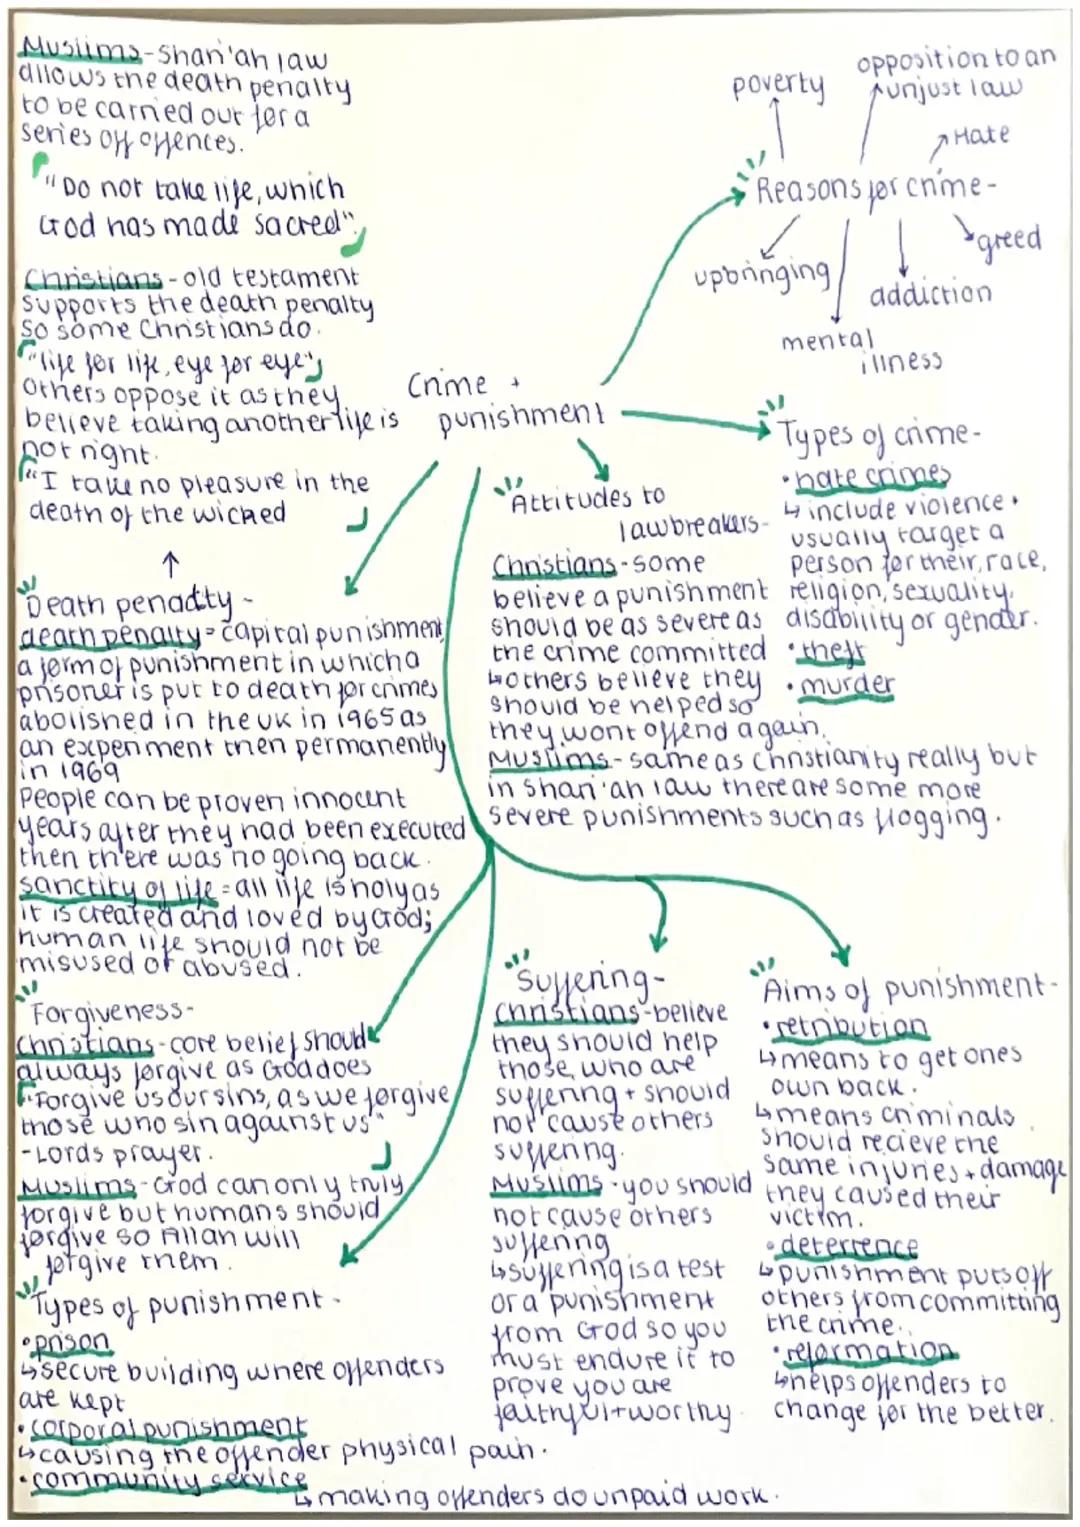 Muslims-Shari'ah law
allows the death penalty
to be carried out for a
series off offences.
"Do not take life, which
God has made sacred".
Christians-old testament
supports the death penalty
so some Christians do.
"life for life, eye for eye"
Others oppose it as they
believe taking another life is
not right.
"I take no pleasure in the
death of the wicked
↑
Death penalty-
death penalty= capital punishment,
a form of punishment in which a
prisoner is put to death for crimes
abolished in the UK in 1965 as
an experiment then permanently
in 1969
People can be proven innocent
years after they had been executed
then there was no going back.
sanctity of life = all life is holy as
it is created and loved by God;
human life should not be
misused or abused.
Forgiveness-
Christians-core belief should
always forgive as God does
"Forgive us our sins, as we forgive
those who sin against us"
-Lords prayer.
Muslims-God can only truly
forgive but humans should
forgive so Allah will
forgive them.
Types of punishment-
•prison
↳secure building where offenders
are kept
•corporal punishment
↳causing the offender physical pain.
•community service
↳making offenders do unpaid work.
Crime +
punishment
poverty
opposition to an
unjust law
Hate
Reasons for crime-
upbringing
greed
addiction
mental
illness
Types of crime-
•hate crimes
↳include violence.
usually target a
person for their, race,
religion, sexuality,
disability or gender.
•theft
•murder
Attitudes to
lawbreakers-
Christians-some
believe a punishment
should be as severe as
the crime committed
↳others believe they
should be helped so
they wont offend again.
Muslims-same as christianity really but
in Shari'ah law there are some more
severe punishments such as flogging.
Suffering-
Christians-believe
they should help
those, who are
suffering + should
not cause others
suffering.
Muslims-you should
not cause others
suffering
↳suffering is a test
or a punishment
from God so you
must endure it to
prove you are
faithful+worthy.
Aims of punishment-
•retribution
↳means to get ones
own back.
↳means criminals
should recieve the
same injuries + damage
they caused their
victim.
•deterrence
↳punishment puts off
others from committing
the crime.
•reformation
↳helps offenders to
change for the better.